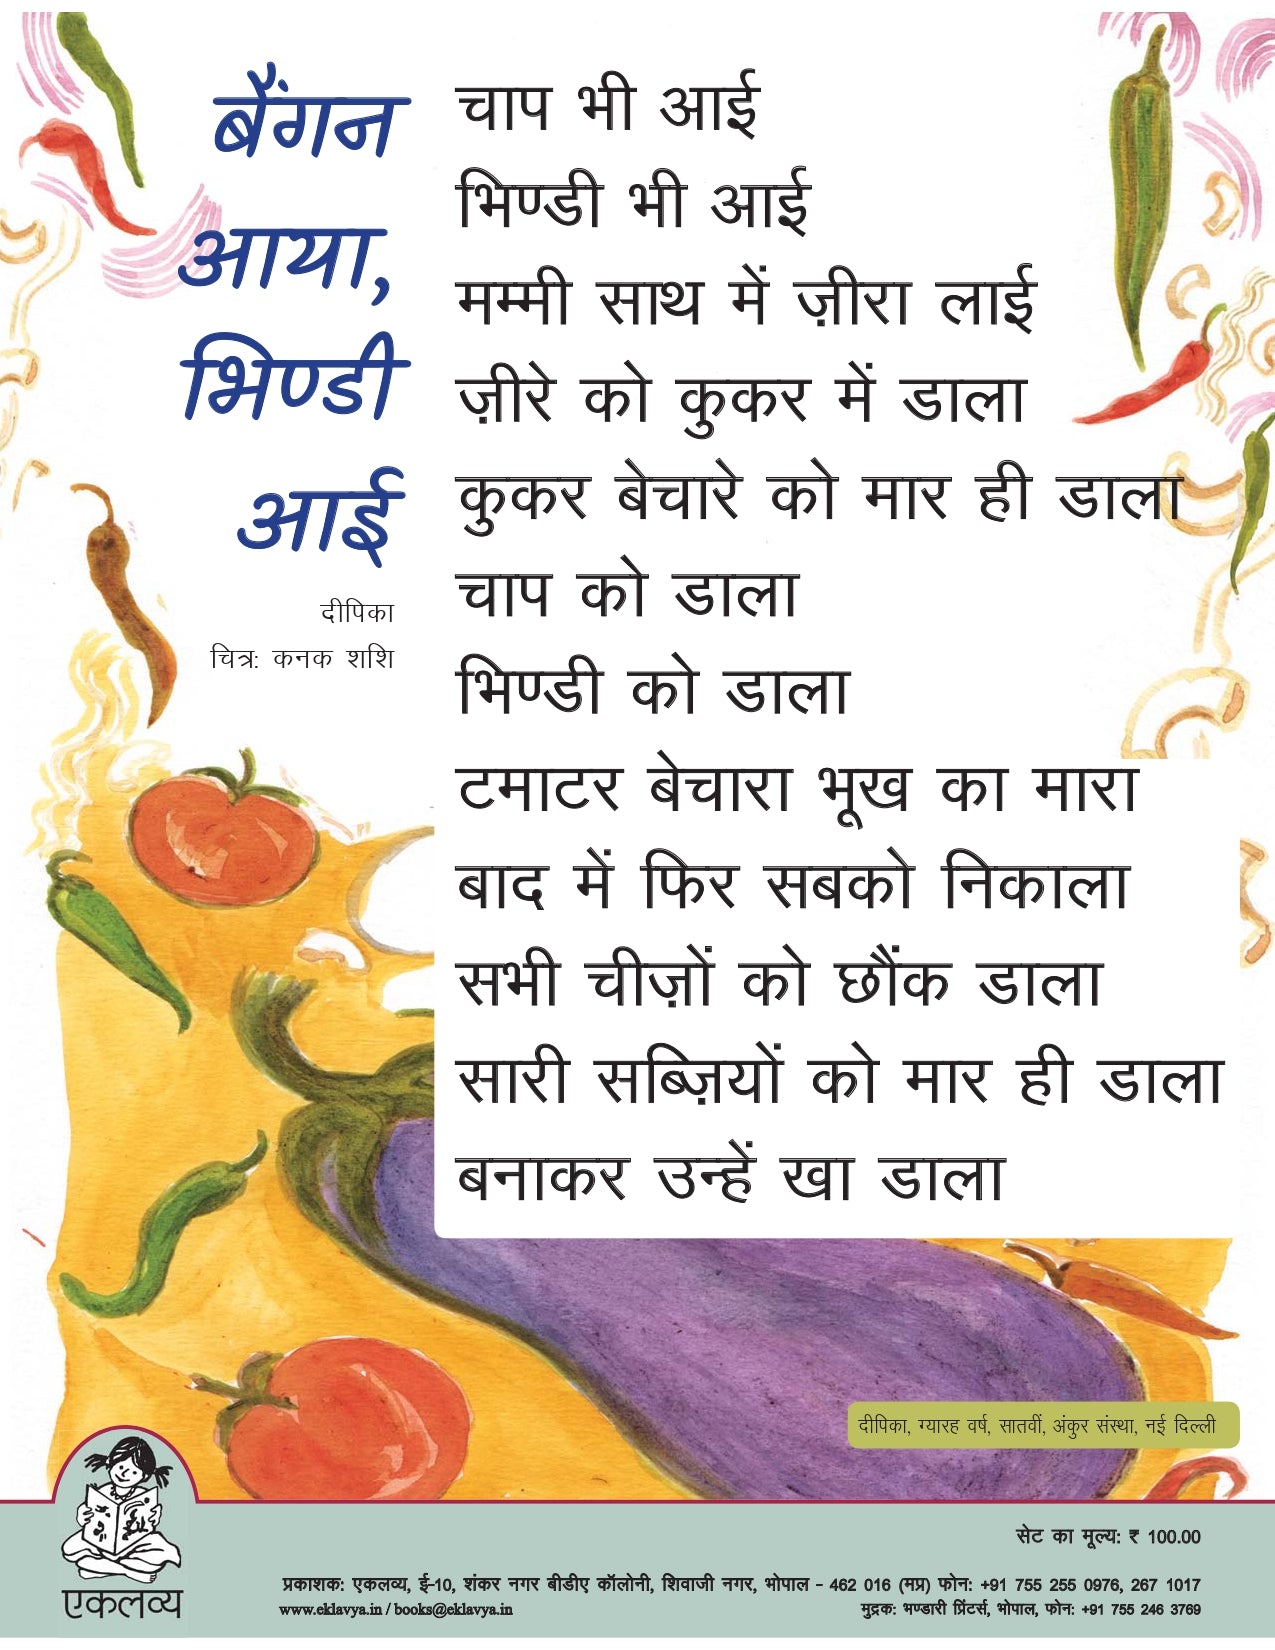 बैंगन
आया,
भिण्डी
आई
दीपिका
चित्र: कनक शशि
चाप भी आई
भिण्डी भी आई
मम्मी साथ में ज़ीरा लाई
ज़ीरे को कुकर में डाला
कुकर बेचारे को मार ही डाला
चाप को डाला
भिण्डी को डाला
टमाटर बेचारा भूख का मारा
बाद में फिर सबको निकाला
सभी चीज़ों को छौंक डाला
सारी सब्ज़ियों को मार ही डाला
बनाकर उन्हें खा डाला
दीपिका, ग्यारह वर्ष, सातवीं, अंकुर संस्था, नई दिल्ली
सेट का मूल्य: ₹ 100.00
एकलव्य
प्रकाशक: एकलव्य, ई-10, शंकर नगर बीडीए कॉलोनी, शिवाजी नगर, भोपाल - 462 016 (मप्र) फोन: +91 755 255 0976, 267 1017
www.eklavya.in / books@eklavya.in
मुद्रक: भण्डारी प्रिंटर्स, भोपाल, फोन: +91 755 246 3769